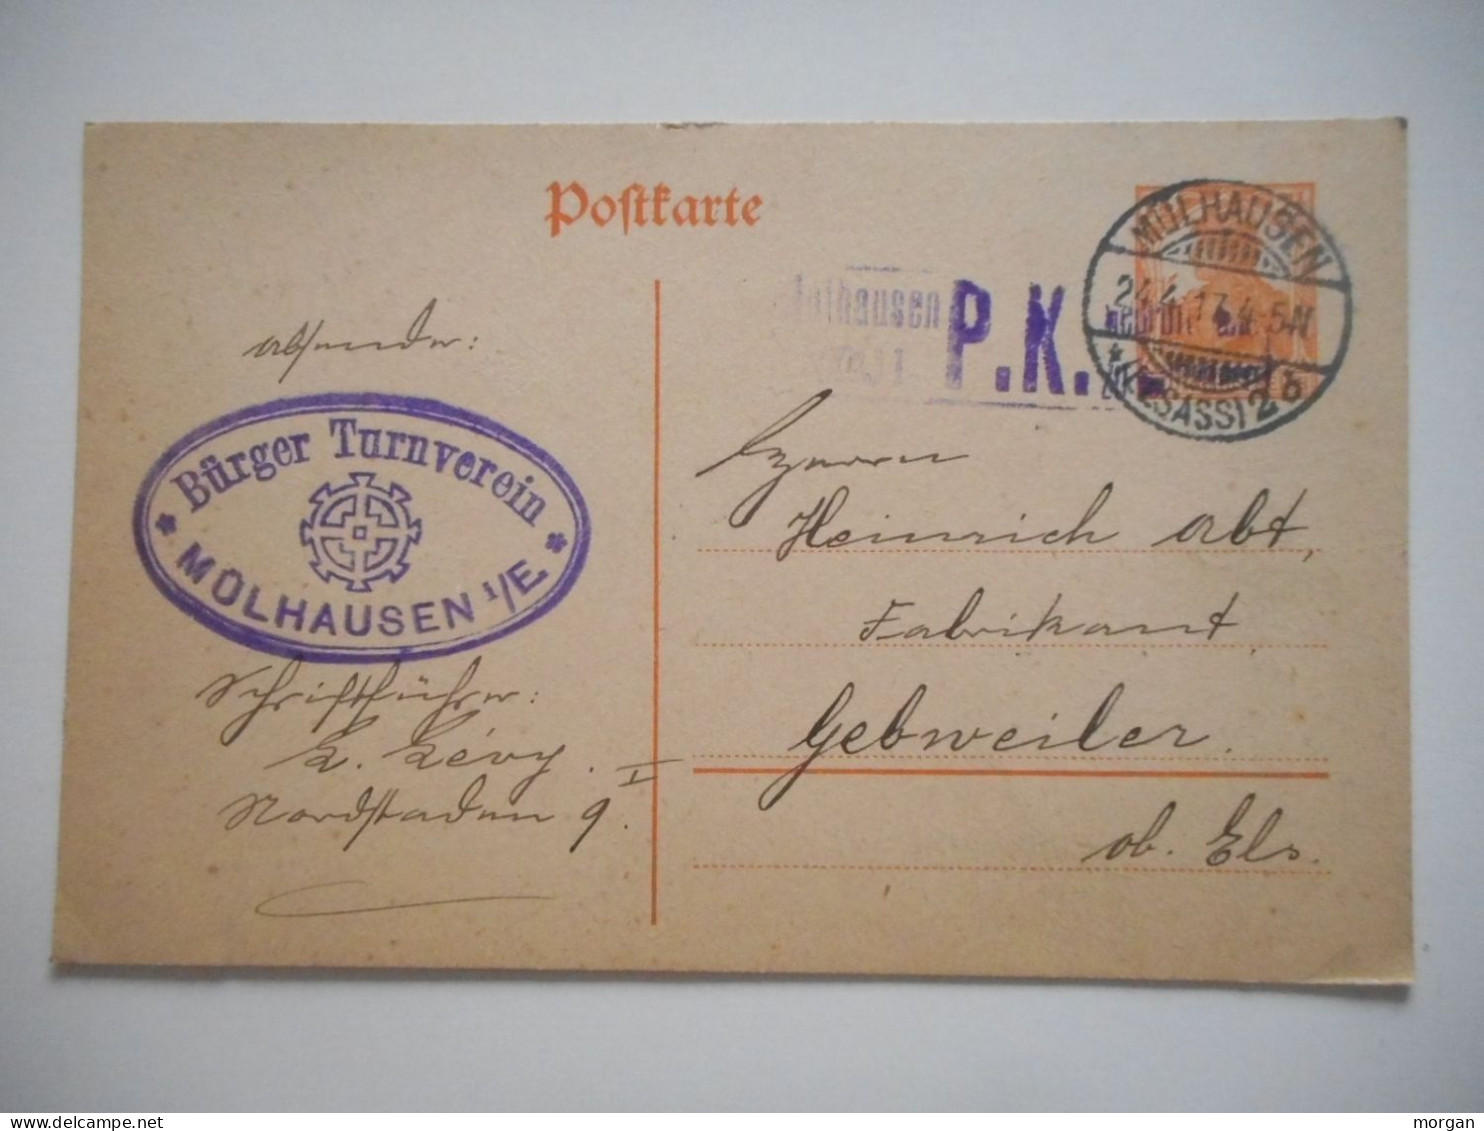 Postkarte
MÜLHAUSEN
24.4.17.4-5N
* (ELSASS) 2 b
Mülhausen
P.K.
Absender:
Bürger Turnverein
* MÜLHAUSEN i/E *
Schriftführer:
L. Lévy.
Nordstaden 9 I.
Herrn
Heinrich Abt,
Fabrikant
Gebweiler.
ob. Els.
morgan